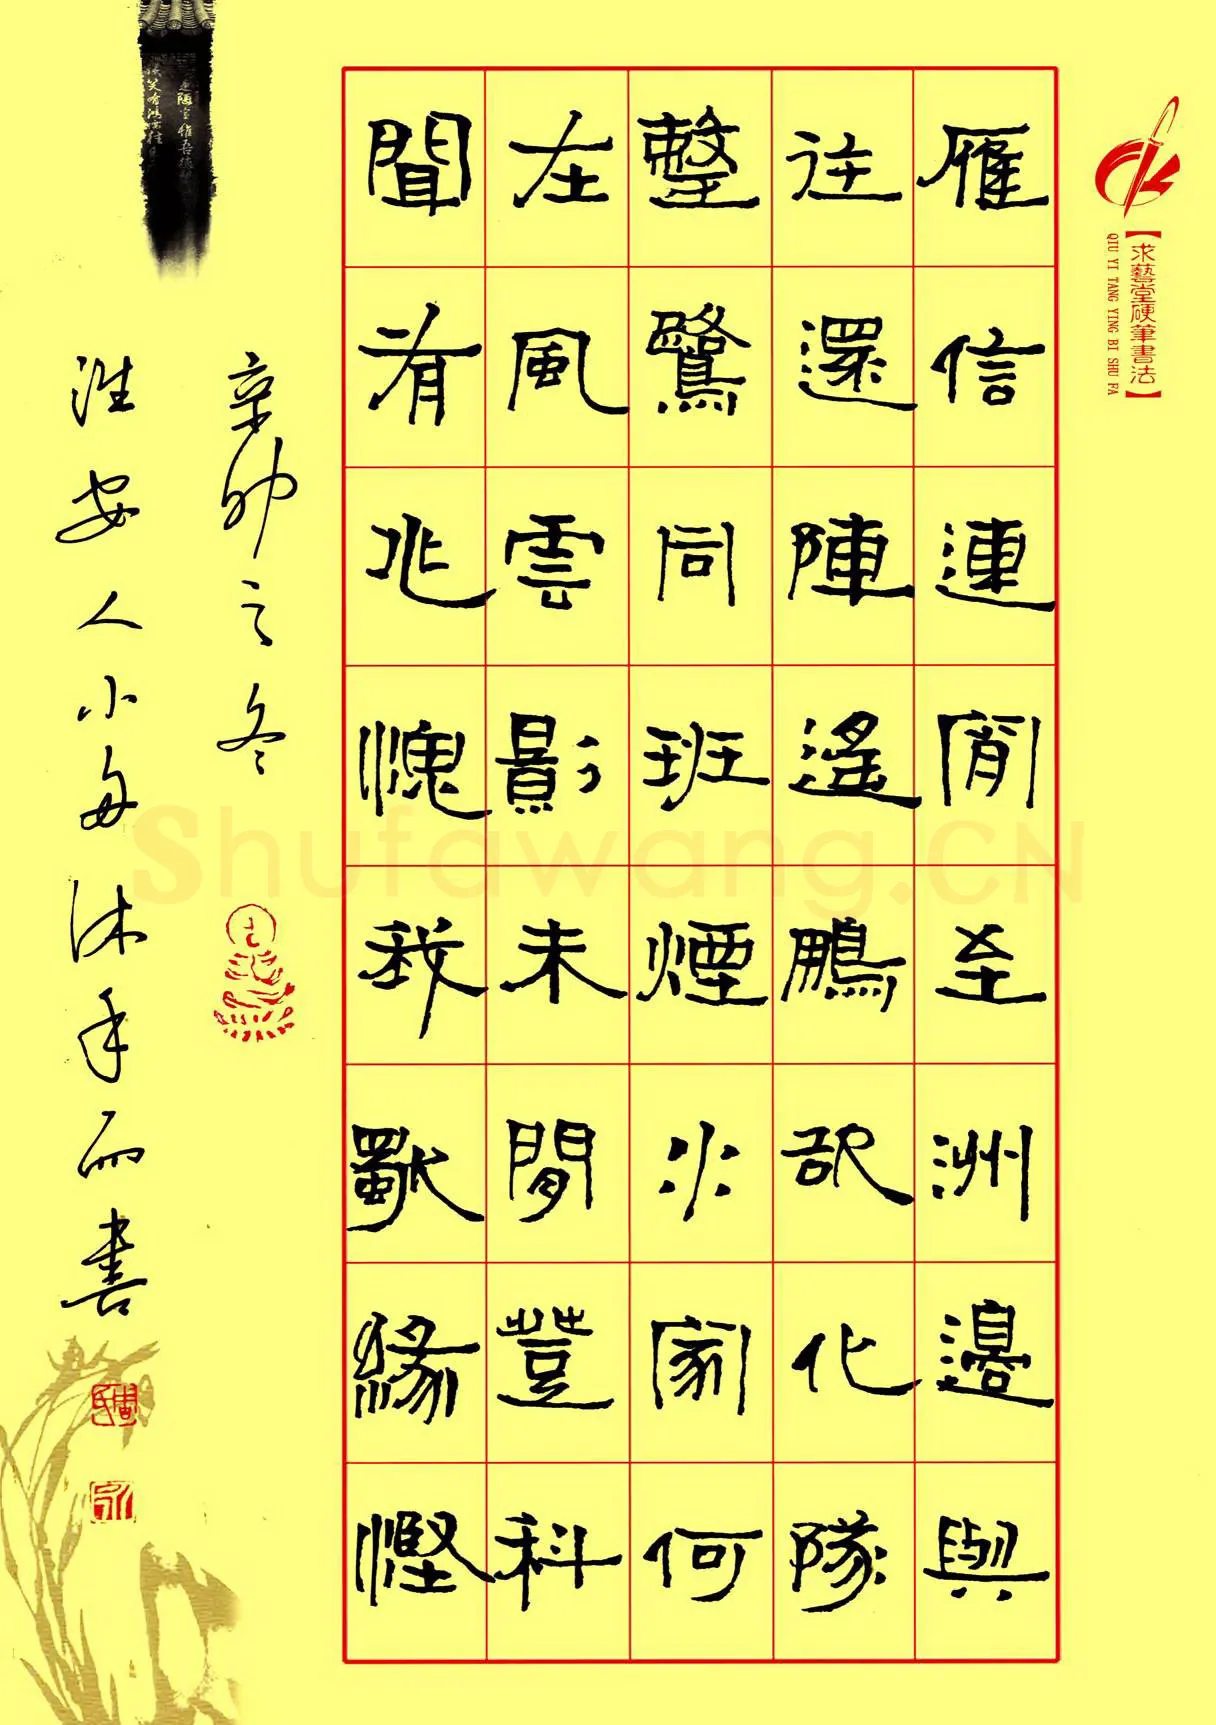 【求藝堂硬筆書法】
QIU YI TANG YING BI SHU FA
雁信連閒至洲邊與
往還陣遙鵬欲化隊
整鷺同班煙火家何
在風雲影未閒登科
聞有兆愧我獨緣慳
辛卯之冬
淮安人小每沐手而書
Shufawang.CN